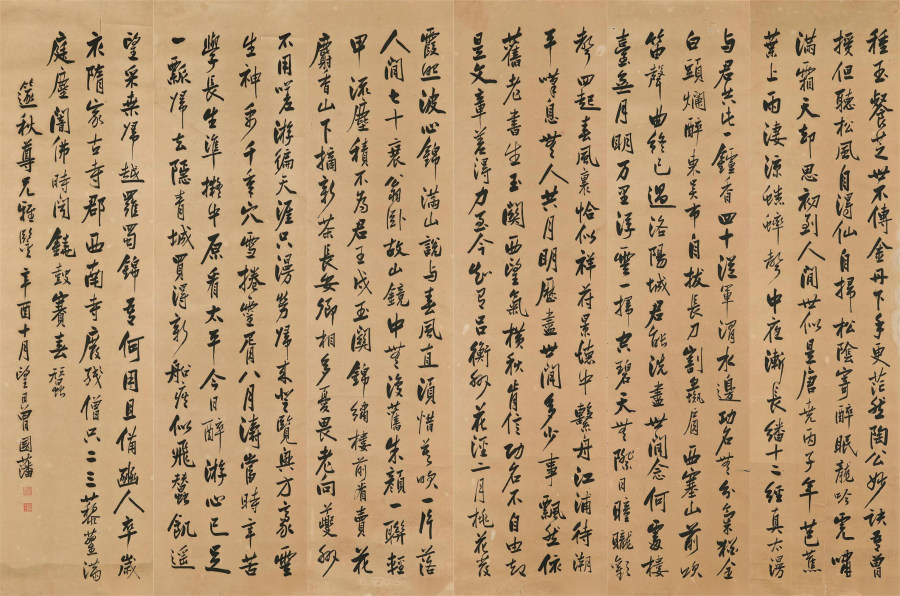 種玉餐芝世不傳金丹下手更茫然陶公妙訣吾曾
授但聽松風自得仙自掃松陰寄醉眠龍吟虎嘯
滿霜天却思初到人間世似是唐堯丙子年芭蕉
葉上雨淒涼蟋蟀聲中夜漸長繙十二經真太漫
與君共此一鑪香四十從軍渭水邊功名無分氣猶全
白頭爛醉東吳市自拔長刀割彘肩西塞山前吹
笛聲曲終已過洛陽城君能洗盡世間念何處樓
臺無月明万里浮雲一掃空碧天無際日曈曨歡
聲四起春風裏恰似祥符景德中繫舟江浦待潮
平嘆息無人共月明歷盡世間多少事飄然依
舊老書生玉關西望氣橫秋肯信功名不自由却
是文章差得力至今知有呂衡州花涇二月桃花發
霞照波心錦滿山說與春風直須惜莫吹一片落
人間七十衰翁卧故山鏡中無復舊朱顏一聯輕
甲流塵積不為君王戍玉關錦繡樓前看賣花
麝香山下摘新茶長安卿相多憂畏老向夔州
不用嗟游遍天涯只漫勞歸來登覽興方豪雲
生神禹千年穴雪捲靈胥八月濤當時辛苦
學長生準擬牛原看太平今日醉游心已足
一瓢歸去隱青城買得新船疾似飛蠶飢遙
望采桑歸越羅蜀錦吾何用且備幽人卒歲
衣隋家古寺郡西南寺廢殘僧只二三藜藋滿
庭塵闇佛時聞鐃鼓賽春蠶
篴秋尊兄雅鑒辛酉十月望日曾國藩